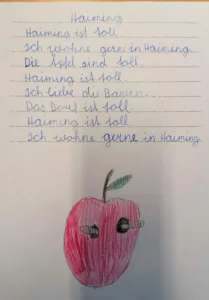 Haiming
Haiming ist toll.
Ich wohne gern in Haiming.
Die Äpfel sind toll.
Haiming ist toll.
Ich liebe die Bauern.
Das Dorf ist toll.
Haiming ist toll.
Ich wohne gerne in Haiming.